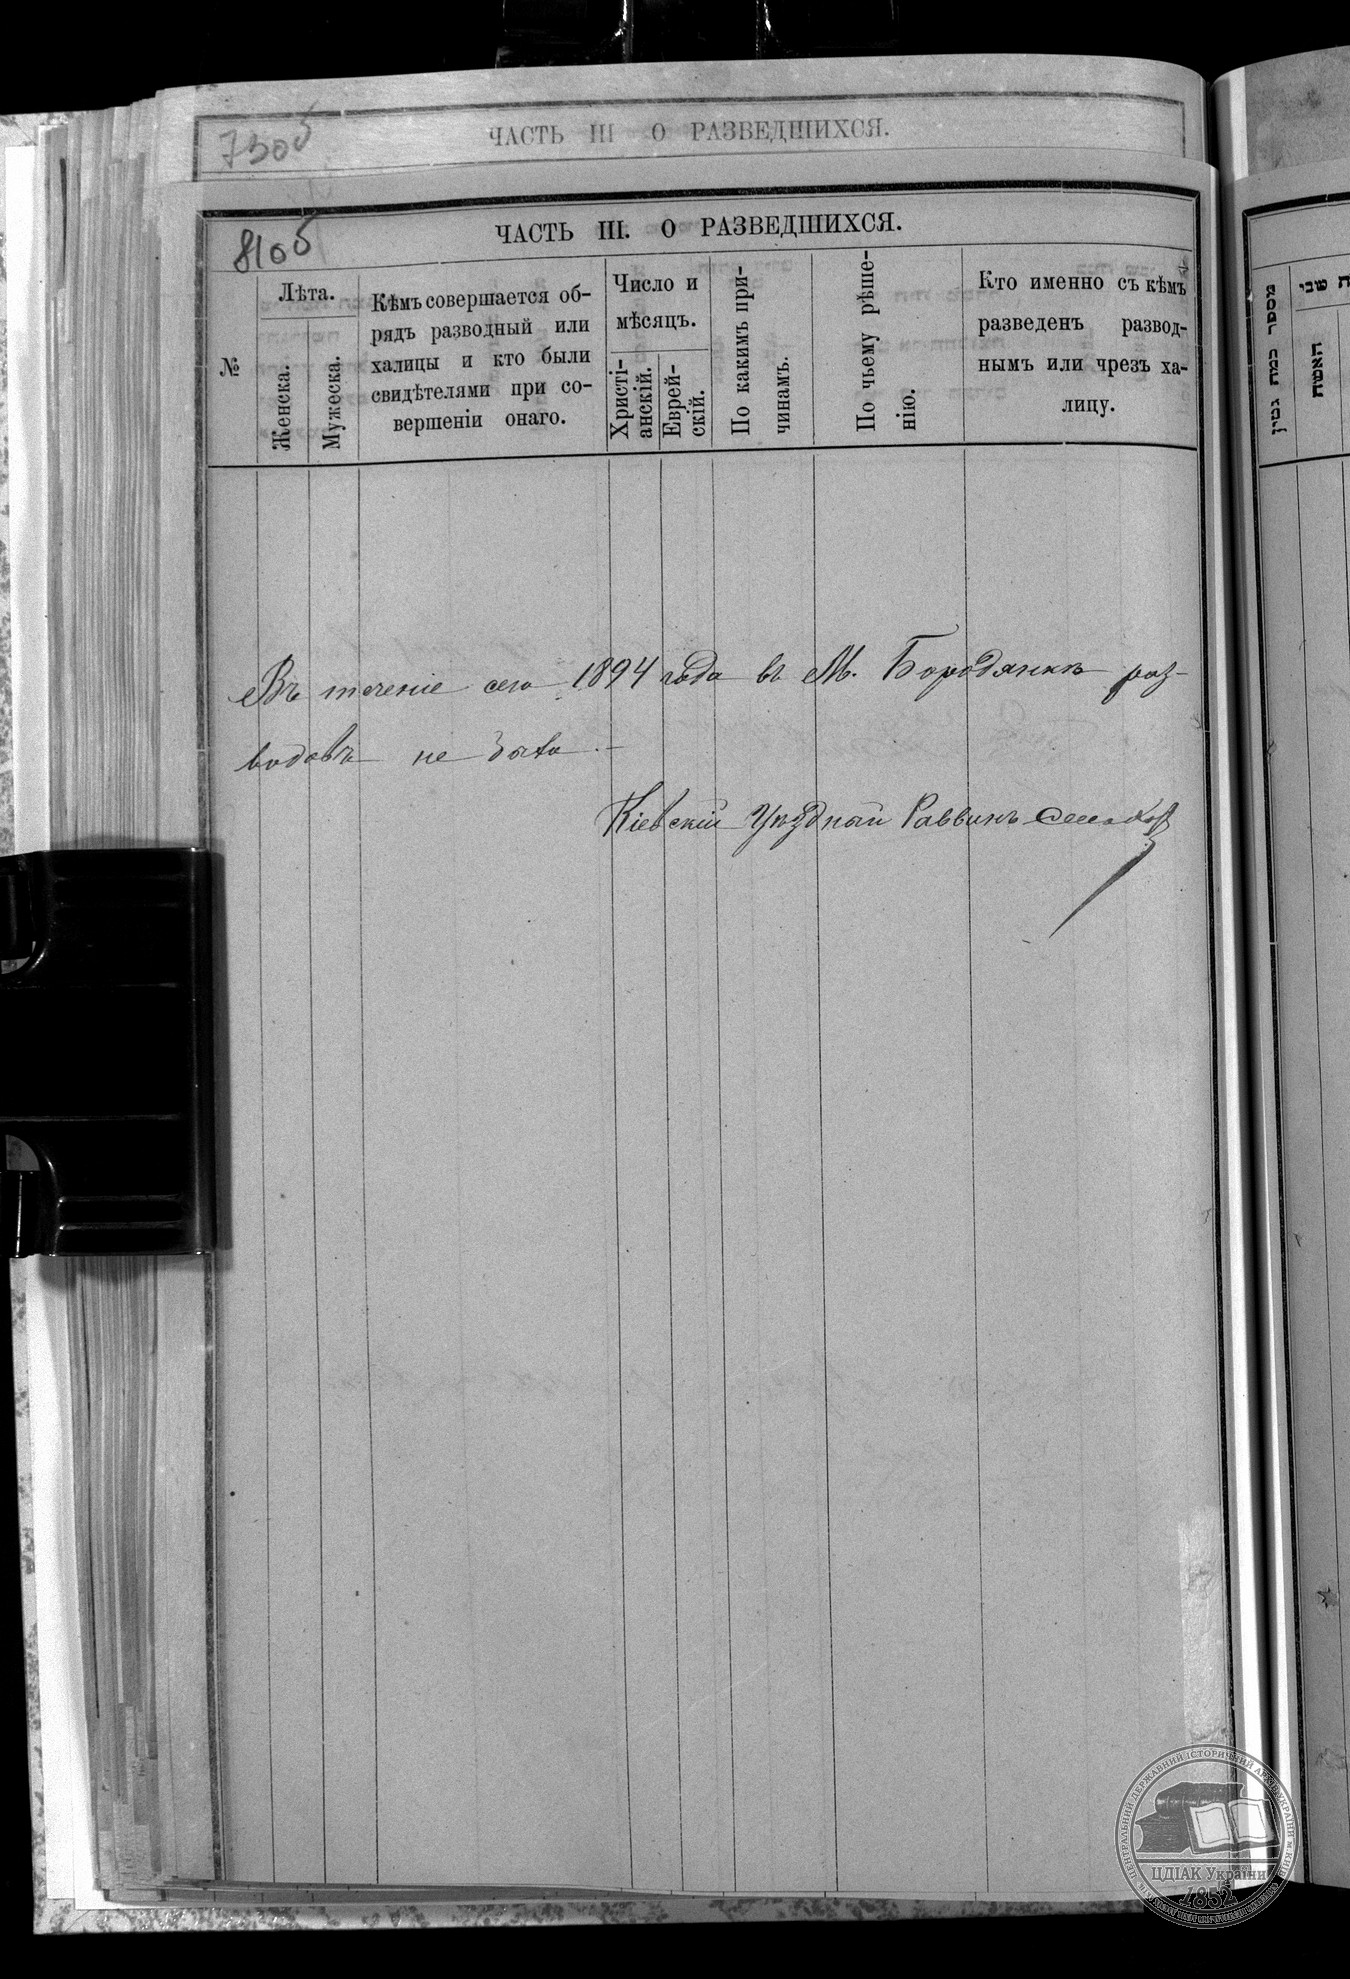 730б
ЧАСТЬ III О РАЗВЕДШИХСЯ.
810б
ЧАСТЬ III. О РАЗВЕДШИХСЯ.
№
Лѣта.
Женска.
Мужеска.
Кѣмъ совершается об-
рядъ разводный или
халицы и кто были
свидѣтелями при со-
вершеніи онаго.
Число и
мѣсяцъ.
Христі-
анскій.
Еврей-
скій.
По какимъ при-
чинамъ.
По чьему рѣше-
нію.
Кто именно съ кѣмъ
разведенъ развод-
нымъ или чрезъ ха-
лицу.
Въ теченіе сего 1894 года въ М. Бородянкѣ раз-
водовъ не было.
Кіевскій Уѣздный Раввинъ
מספר כמה גטין
האשה
ЦЕНТРАЛЬНИЙ ДЕРЖАВНИЙ ІСТОРИЧНИЙ АРХІВ УКРАЇНИ м.КИЇВ
ЦДІАК України
1852